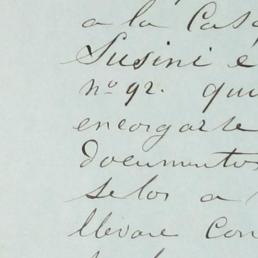 a la Casa
Susini é
nº 92. qui
encargarte
documentos
selos a
llevare con